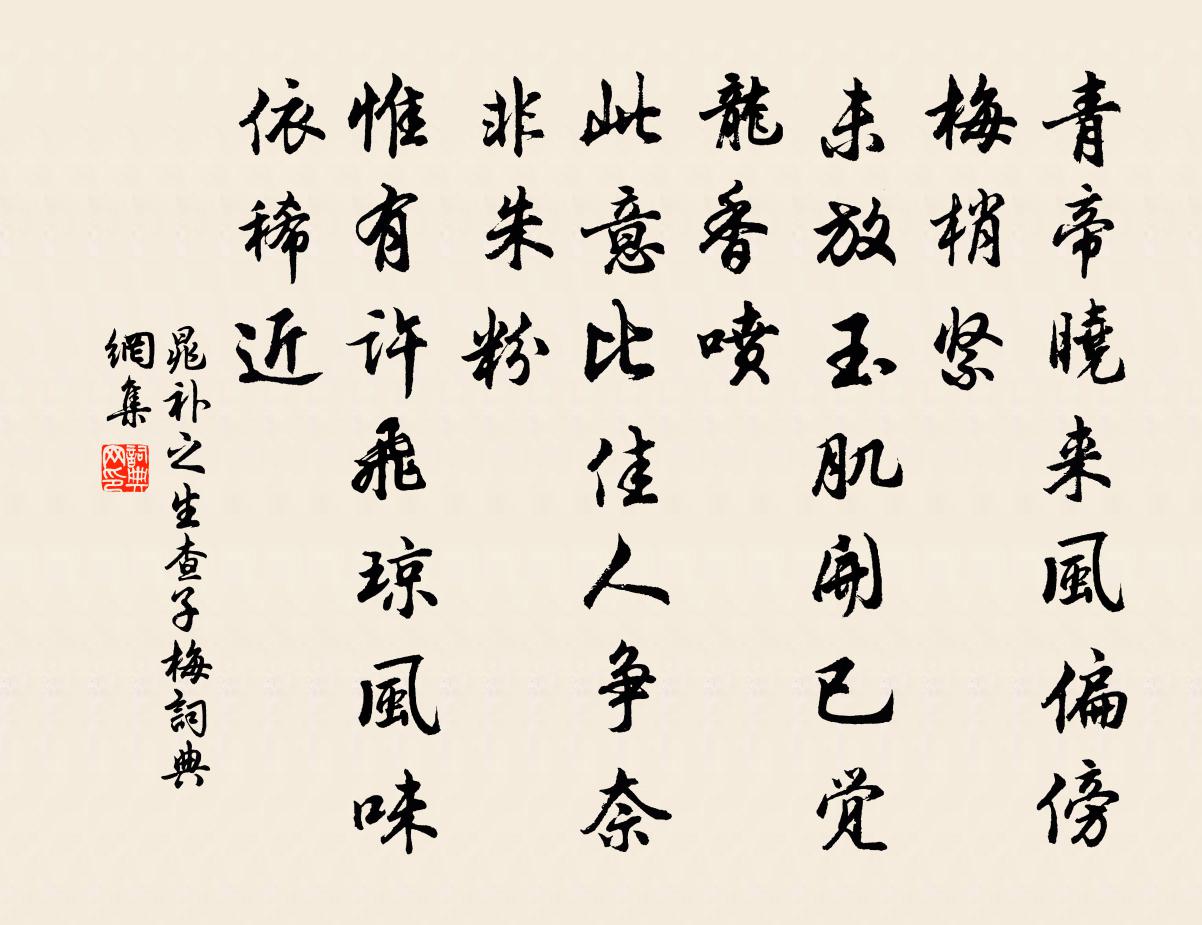 青帝曉来風偏傍
梅梢紧
未放玉肌開已觉
龍香喷
此意比佳人争奈
非朱粉
惟有许飛琼風味
依稀近
晁补之生查子梅詞典
網集
詞典
网印